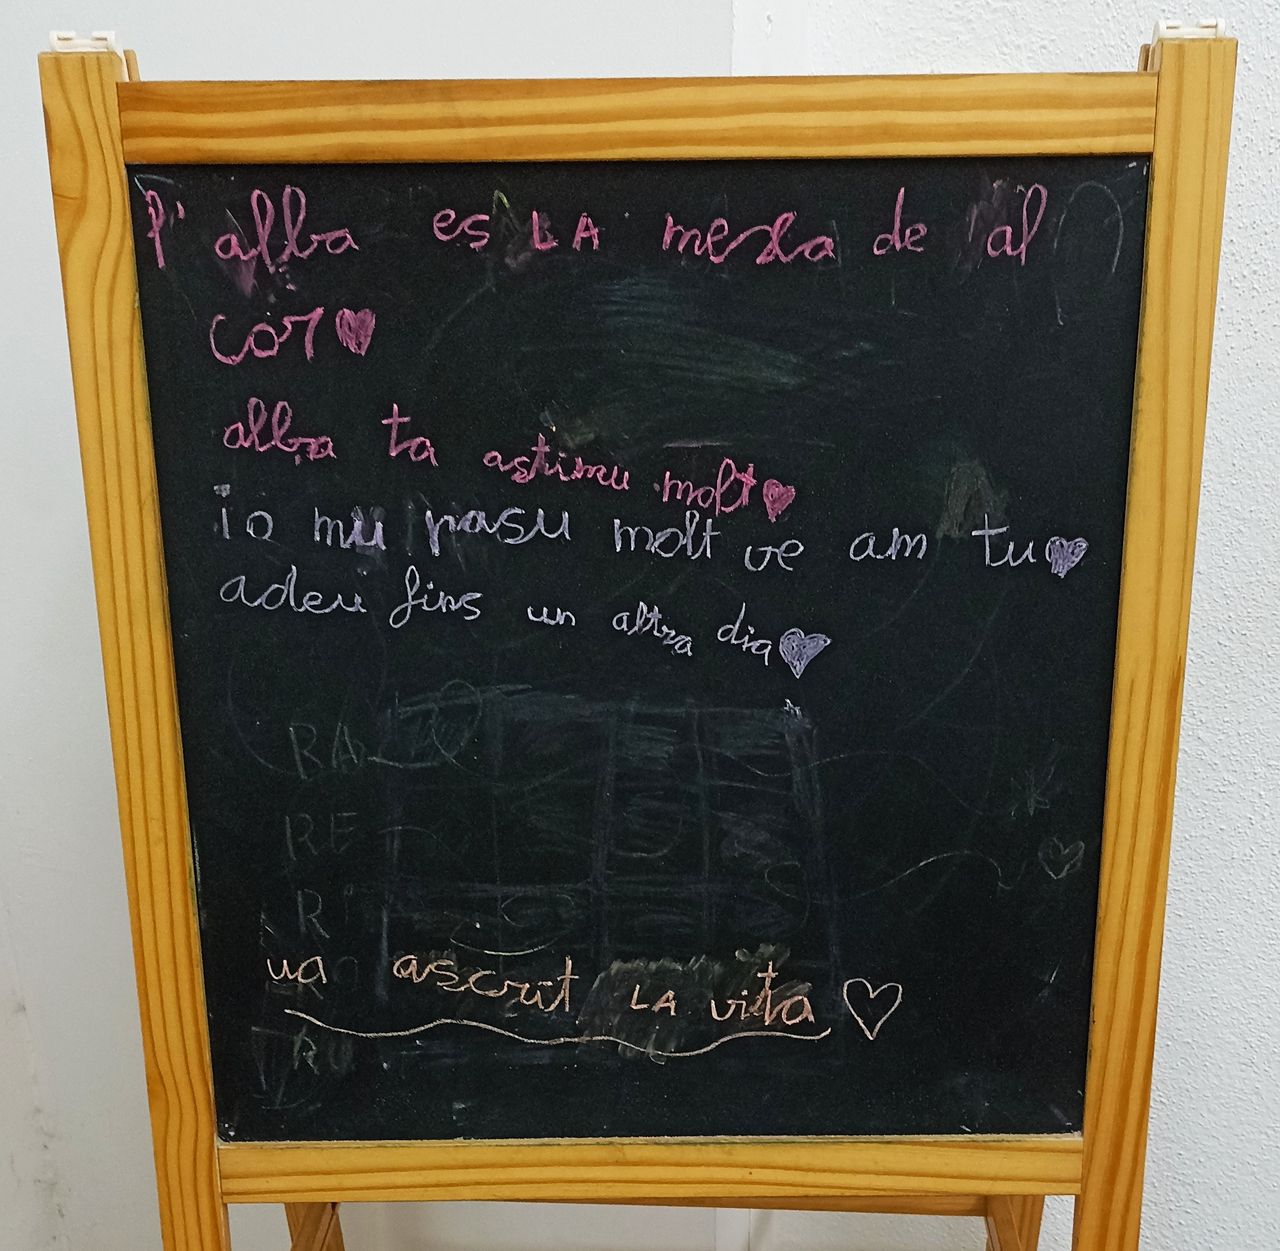 l' alba es LA mescla de al
cor
alba ta astimu molt
io mu pasu molt ve am tu
adeu fins un altra dia
BA
RE
RI
ua ascrit LA vita
RU